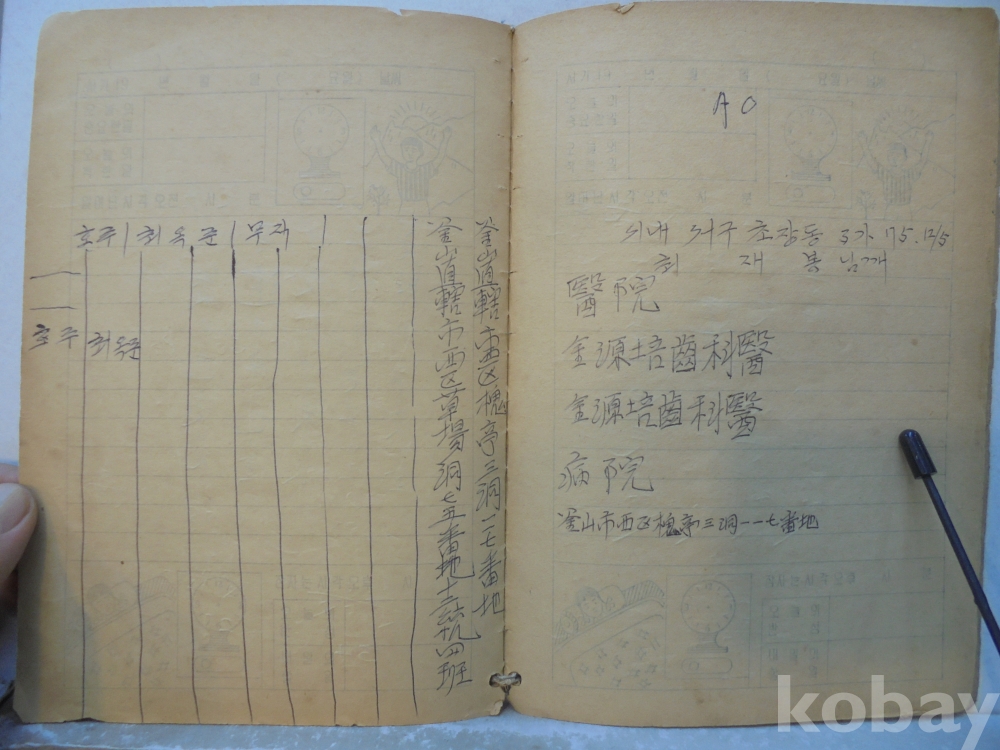 호주 최옥준 무직
호주 최옥준
釜山直轄市西区草場洞七五番地十二統四班
釜山直轄市西区槐亭三洞一一七番地
A O
시내 서구 초장동 3가 175. 12/5
최 재 봉 님께
醫院
金源培齒科醫
金源培齒科醫
病院
釜山市西区槐亭三洞一一七番地
kobay